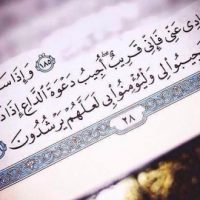 ١٨٥ وَإِذَا سَ
ادِى عَنِّى فَإِنِّى قَرِيبٌ أُجِيبُ دَعْوَةَ ٱلدَّاعِ إِذَا دَ
جِيبُوا۟ لِى وَلْيُؤْمِنُوا۟ بِى لَعَلَّهُمْ يَرْشُدُونَ
٢٨